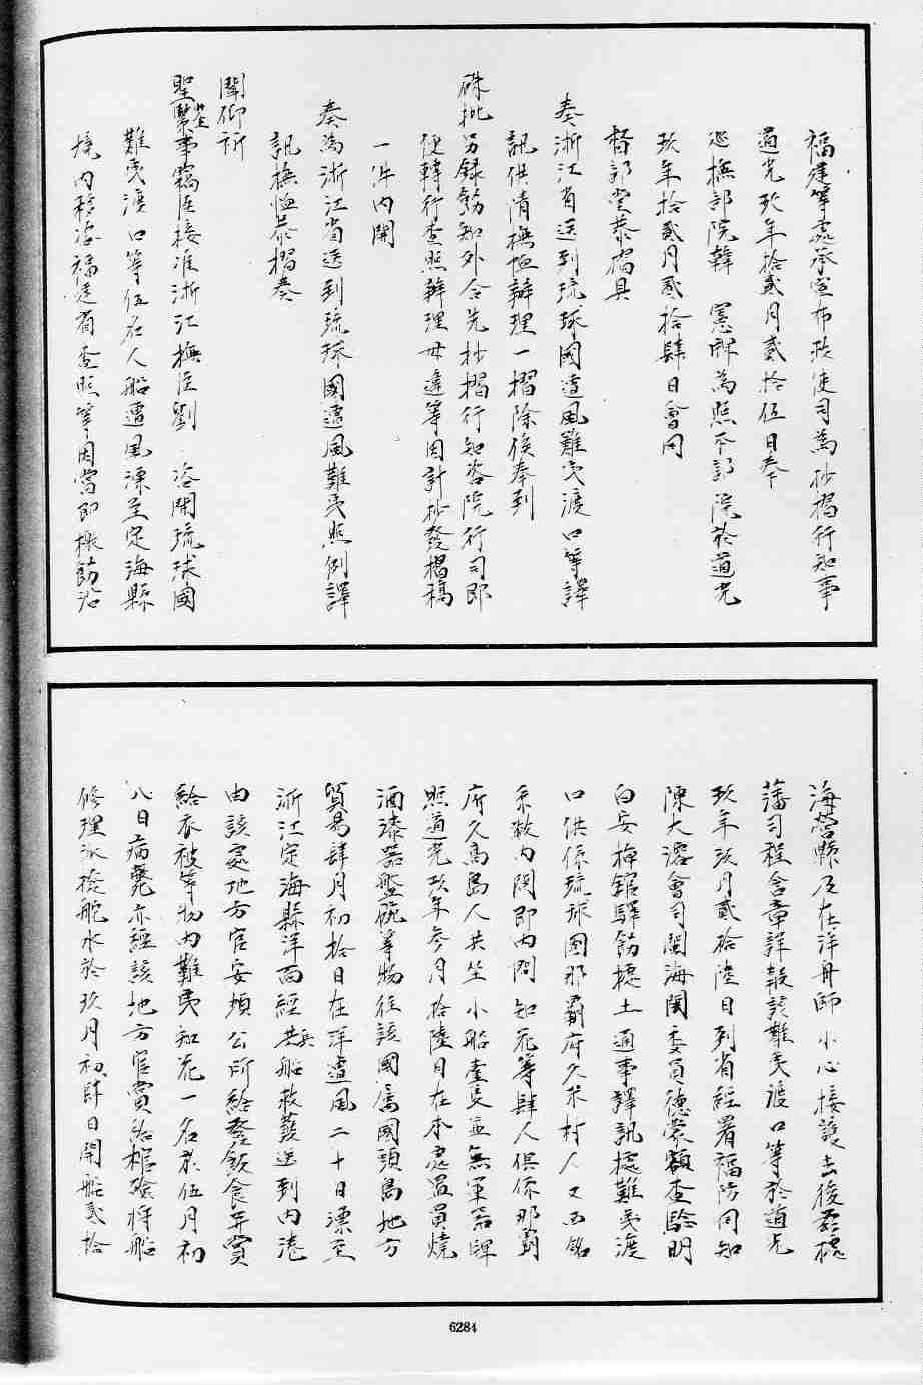 福建等處承宣布政使司為抄摺行知事
道光玖年拾貳月貳拾伍日奉
巡撫部院韓 憲牌為照本部院於道光
玖年拾貳月貳拾肆日會同
督部堂恭摺具
奏浙江省送到琉球國遭風難夷渡口等譯
訊供情撫恤辦理一摺除俟奉到
硃批另錄飭知外合先抄摺行知咨院行司即
便轉行查照辦理毋違等因計抄發摺稿
一件內開
奏為浙江省送到琉球國遭風難夷照例譯
訊撫恤恭摺奏
聞仰祈
聖鑒事竊臣接准浙江撫臣劉 咨開琉球國
難夷渡口等伍名人船遭風漂至定海縣
境內移咨福建省查照等因當即檄飭沿
海營縣及在洋舟師小心接護去後茲據
藩司程含章詳報該難夷渡口等於道光
玖年玖月貳拾陸日到省經署福防同知
陳大溶會同閩海關委員德蒙額查驗明
白安插館驛飭據土通事譯訊據難夷渡
口供係琉球國那霸府久米村人又西銘
系數內間即內間知花等肆人俱係那霸
府久高島人共坐小船壹隻並無軍器牌
照道光玖年叁月拾陸日在本處置買燒
酒漆器盤碗等物往該國屬國頭島地方
貿易肆月初拾日在洋遭風二十日漂至
浙江定海縣洋面經兵船救護送到內港
由該處地方官安頓公所給發飯食并賞
給衣被等物內難夷知花一名於伍月初
八日病斃亦經該地方官賞給棺殮將船
修理添換舵水於玖月初肆日開船貳拾
6284